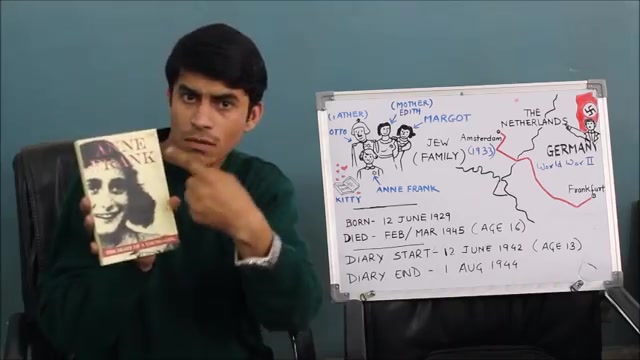 ANNE
FRANK
THE DIARY OF A YOUNG GIRL
(FATHER)
OTTO
(MOTHER)
EDITH
MARGOT
JEW
(FAMILY)
ANNE FRANK
KITTY
THE
NETHERLANDS
Amsterdam
(1933)
GERMANY
World War II
Frankfurt
BORN- 12 JUNE 1929
DIED - FEB/MAR 1945 (AGE 16)
DIARY START- 12 JUNE 1942 (AGE 13)
DIARY END - 1 AUG 1944